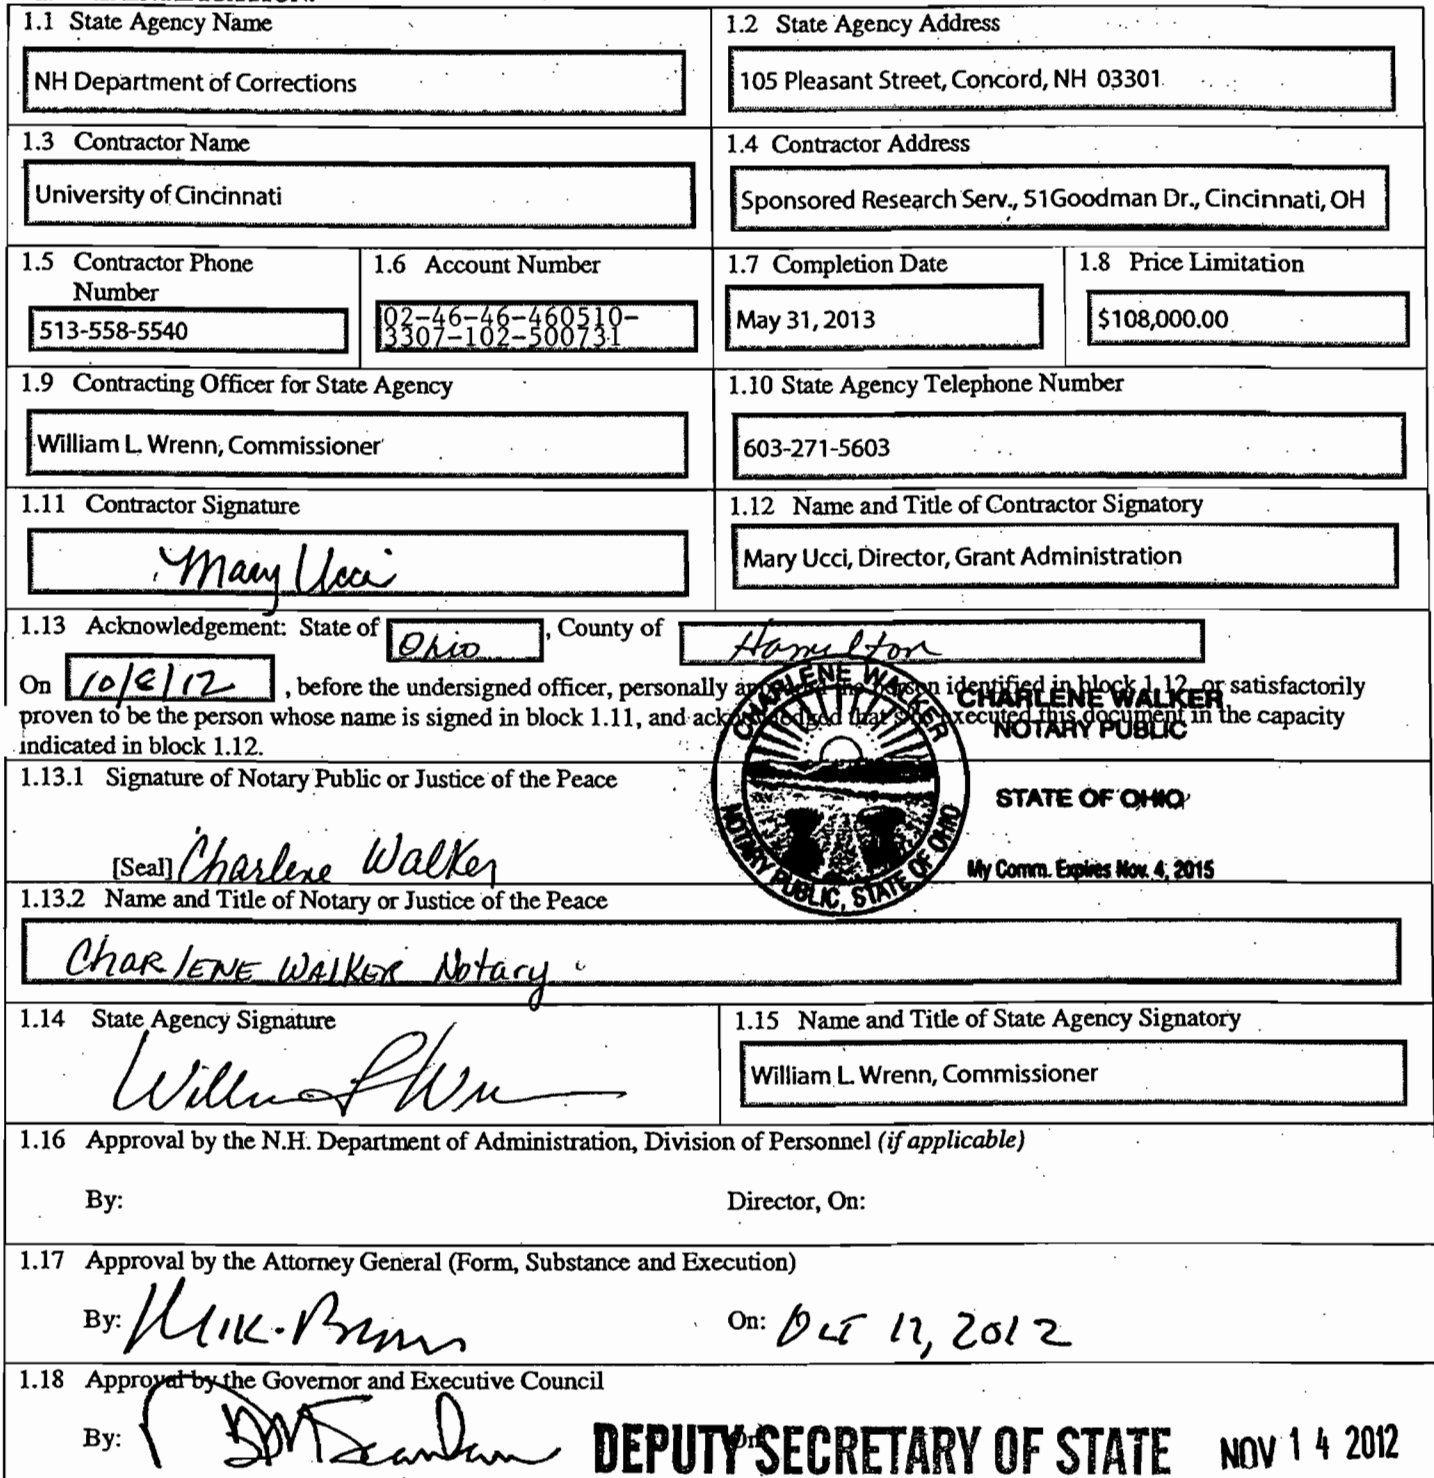 1.1 State Agency Name
NH Department of Corrections
1.2 State Agency Address
105 Pleasant Street, Concord, NH 03301
1.3 Contractor Name
University of Cincinnati
1.4 Contractor Address
Sponsored Research Serv., 51Goodman Dr., Cincinnati, OH
1.5 Contractor Phone
Number
513-558-5540
1.6 Account Number
02-46-46-460510-
3307-102-500731
1.7 Completion Date
May 31, 2013
1.8 Price Limitation
$108,000.00
1.9 Contracting Officer for State Agency
William L. Wrenn, Commissioner
1.10 State Agency Telephone Number
603-271-5603
1.11 Contractor Signature
Mary Ucci
1.12 Name and Title of Contractor Signatory
Mary Ucci, Director, Grant Administration
1.13 Acknowledgement: State of Ohio, County of Hamilton
On 10/8/12, before the undersigned officer, personally identified in block 1.12, or satisfactorily
proven to be the person whose name is signed in block 1.11, and executed this document in the capacity
indicated in block 1.12.
CHARLENE WALKER
NOTARY PUBLIC, STATE OF OHIO
CHARLENE WALKER
NOTARY PUBLIC
STATE OF OHIO
My Comm. Expires Nov. 4, 2015
1.13.1 Signature of Notary Public or Justice of the Peace
[Seal] Charlene Walker
1.13.2 Name and Title of Notary or Justice of the Peace
CHARLENE WALKER Notary
1.14 State Agency Signature
1.15 Name and Title of State Agency Signatory
William L. Wrenn, Commissioner
1.16 Approval by the N.H. Department of Administration, Division of Personnel (if applicable)
By:
Director, On:
1.17 Approval by the Attorney General (Form, Substance and Execution)
By:
On: Oct 17, 2012
1.18 Approval by the Governor and Executive Council
By:
DEPUTY SECRETARY OF STATE NOV 14 2012